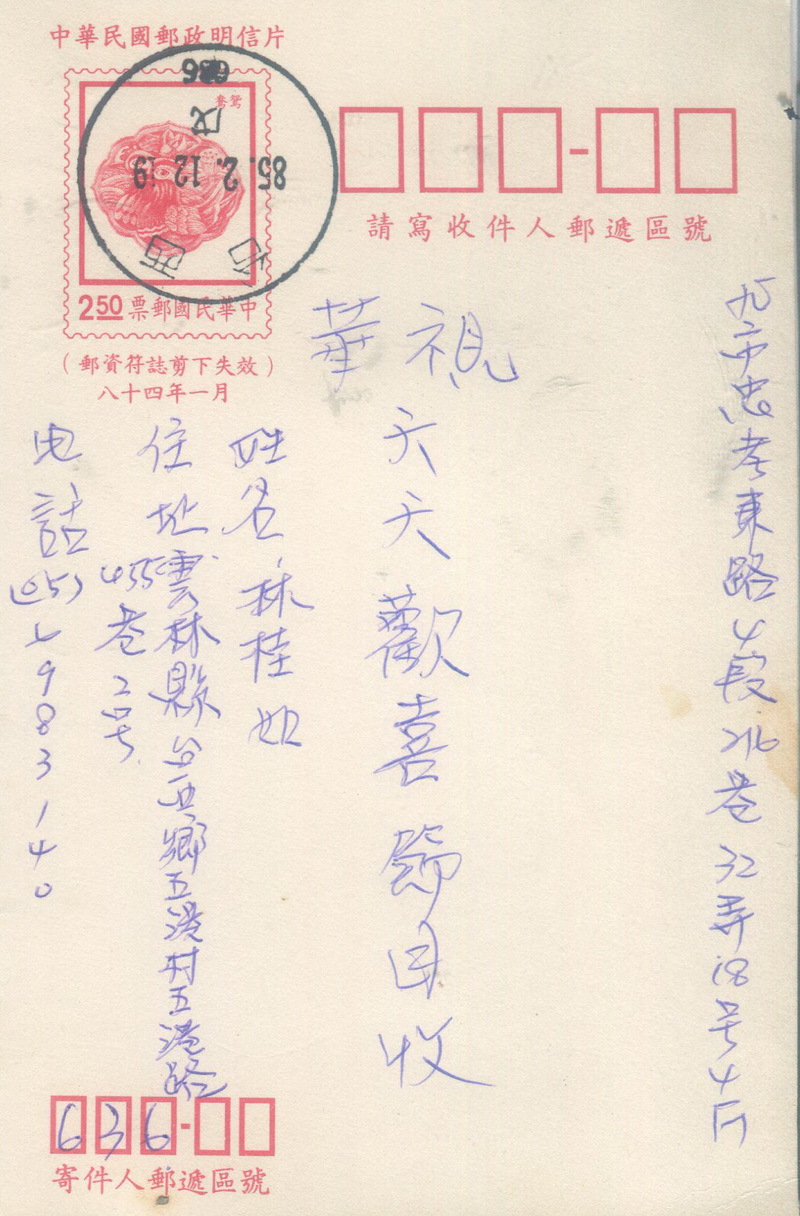 中華民國郵政明信片
鴛鴦
中華民國郵票 2.50
(郵資符誌剪下失效)
八十四年一月
台西
85. 2. 12. 19
戊
636
請寫收件人郵遞區號
北市忠孝東路4段216巷32弄18号4F
華視
天天歡喜節目收
姓名 林桂如
住址 雲林縣台西鄉五港村五港路
455巷2号
电話(05)6983140
636-
寄件人郵遞區號